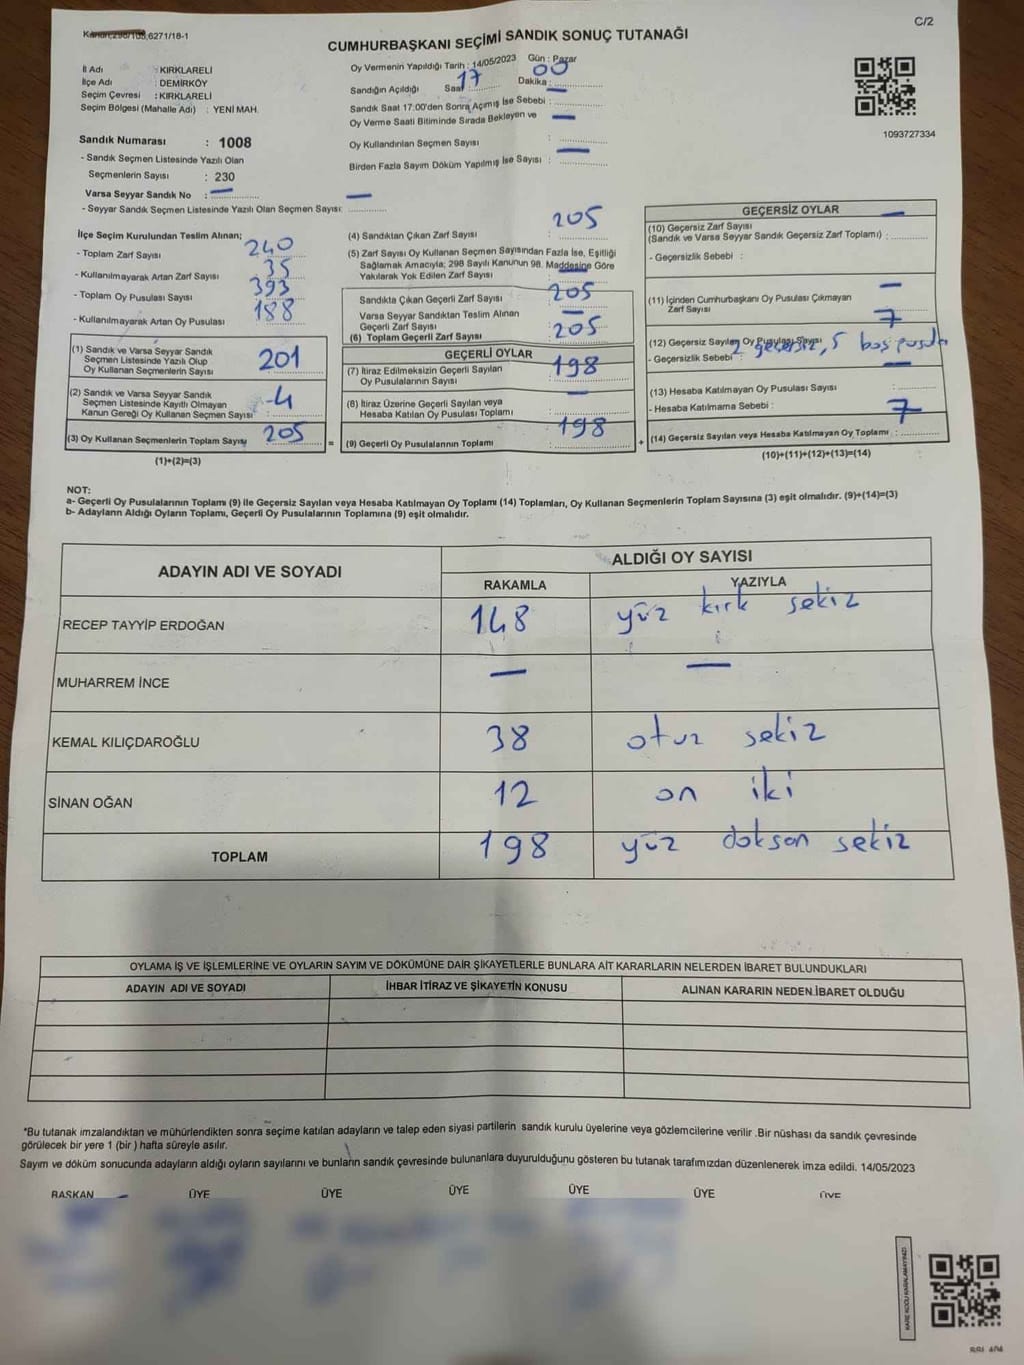 C/2
6271/18-1
CUMHURBAŞKANI SEÇİMİ SANDIK SONUÇ TUTANAĞI
İl Adı : KIRKLARELİ
İlçe Adı : DEMİRKÖY
Seçim Çevresi : KIRKLARELİ
Seçim Bölgesi (Mahalle Adı) : YENİ MAH.
Sandık Numarası : 1008
- Sandık Seçmen Listesinde Yazılı Olan
Seçmenlerin Sayısı : 230
Varsa Seyyar Sandık No : —
- Seyyar Sandık Seçmen Listesinde Yazılı Olan Seçmen Sayısı: —
Oy Vermenin Yapıldığı Tarih : 14/05/2023 Gün : Pazar
Sandığın Açıldığı Saat 17 Dakika : 00
Sandık Saat 17:00'den Sonra Açımış İse Sebebi : —
Oy Verme Saati Bitiminde Sırada Bekleyen ve
Oy Kullandırılan Seçmen Sayısı : —
Birden Fazla Sayım Döküm Yapılmış İse Sayısı : —
1093727334
İlçe Seçim Kurulundan Teslim Alınan;
- Toplam Zarf Sayısı : 240
- Kullanılmayarak Artan Zarf Sayısı : 35
- Toplam Oy Pusulası Sayısı : 393
- Kullanılmayarak Artan Oy Pusulası : 188
(1) Sandık ve Varsa Seyyar Sandık
Seçmen Listesinde Yazılı Olup
Oy Kullanan Seçmenlerin Sayısı : 201
(2) Sandık ve Varsa Seyyar Sandık
Seçmen Listesinde Kayıtlı Olmayan
Kanun Gereği Oy Kullanan Seçmen Sayısı : 4
(3) Oy Kullanan Seçmenlerin Toplam Sayısı : 205
(1)+(2)=(3)
(4) Sandıktan Çıkan Zarf Sayısı : 205
(5) Zarf Sayısı Oy Kullanan Seçmen Sayısından Fazla İse, Eşitliği
Sağlamak Amacıyla; 298 Sayılı Kanunun 98. Maddesine Göre
Yakılarak Yok Edilen Zarf Sayısı : —
Sandıkta Çıkan Geçerli Zarf Sayısı : 205
Varsa Seyyar Sandıktan Teslim Alınan
Geçerli Zarf Sayısı : —
(6) Toplam Geçerli Zarf Sayısı : 205
GEÇERLİ OYLAR
(7) İtiraz Edilmeksizin Geçerli Sayılan
Oy Pusulalarının Sayısı : 198
(8) İtiraz Üzerine Geçerli Sayılan veya
Hesaba Katılan Oy Pusulası Toplamı : —
(9) Geçerli Oy Pusulalarının Toplamı : 198
GEÇERSİZ OYLAR
(10) Geçersiz Zarf Sayısı
(Sandık ve Varsa Seyyar Sandık Geçersiz Zarf Toplamı) : —
- Geçersizlik Sebebi :
(11) İçinden Cumhurbaşkanı Oy Pusulası Çıkmayan
Zarf Sayısı : —
(12) Geçersiz Sayılan Oy Pusulası Sayısı : 7
- Geçersizlik Sebebi : 2 geçersiz, 5 boş pusula
(13) Hesaba Katılmayan Oy Pusulası Sayısı : —
- Hesaba Katılmama Sebebi :
(14) Geçersiz Sayılan veya Hesaba Katılmayan Oy Toplamı : 7
(10)+(11)+(12)+(13)=(14)
NOT:
a- Geçerli Oy Pusulalarının Toplamı (9) ile Geçersiz Sayılan veya Hesaba Katılmayan Oy Toplamı (14) Toplamları, Oy Kullanan Seçmenlerin Toplam Sayısına (3) eşit olmalıdır. (9)+(14)=(3)
b- Adayların Aldığı Oyların Toplamı, Geçerli Oy Pusulalarının Toplamına (9) eşit olmalıdır.
ADAYIN ADI VE SOYADI ALDIĞI OY SAYISI
RAKAMLA YAZIYLA
RECEP TAYYİP ERDOĞAN 148 yüz kırk sekiz
MUHARREM İNCE — —
KEMAL KILIÇDAROĞLU 38 otuz sekiz
SİNAN OĞAN 12 on iki
TOPLAM 198 yüz doksan sekiz
OYLAMA İŞ VE İŞLEMLERİNE VE OYLARIN SAYIM VE DÖKÜMÜNE DAİR ŞİKAYETLERLE BUNLARA AİT KARARLARIN NELERDEN İBARET BULUNDUKLARI
ADAYIN ADI VE SOYADI İHBAR İTİRAZ VE ŞİKAYETİN KONUSU ALINAN KARARIN NEDEN İBARET OLDUĞU
*Bu tutanak imzalandıktan ve mühürlendikten sonra seçime katılan adayların ve talep eden siyasi partilerin sandık kurulu üyelerine veya gözlemcilerine verilir .Bir nüshası da sandık çevresinde
görülecek bir yere 1 (bir ) hafta süreyle asılır.
Sayım ve döküm sonucunda adayların aldığı oyların sayılarını ve bunların sandık çevresinde bulunanlara duyurulduğunu gösteren bu tutanak tarafımızdan düzenlenerek imza edildi. 14/05/2023
BAŞKAN ÜYE ÜYE ÜYE ÜYE ÜYE ÜYE
KARE KODU KARALAMAYINIZ!